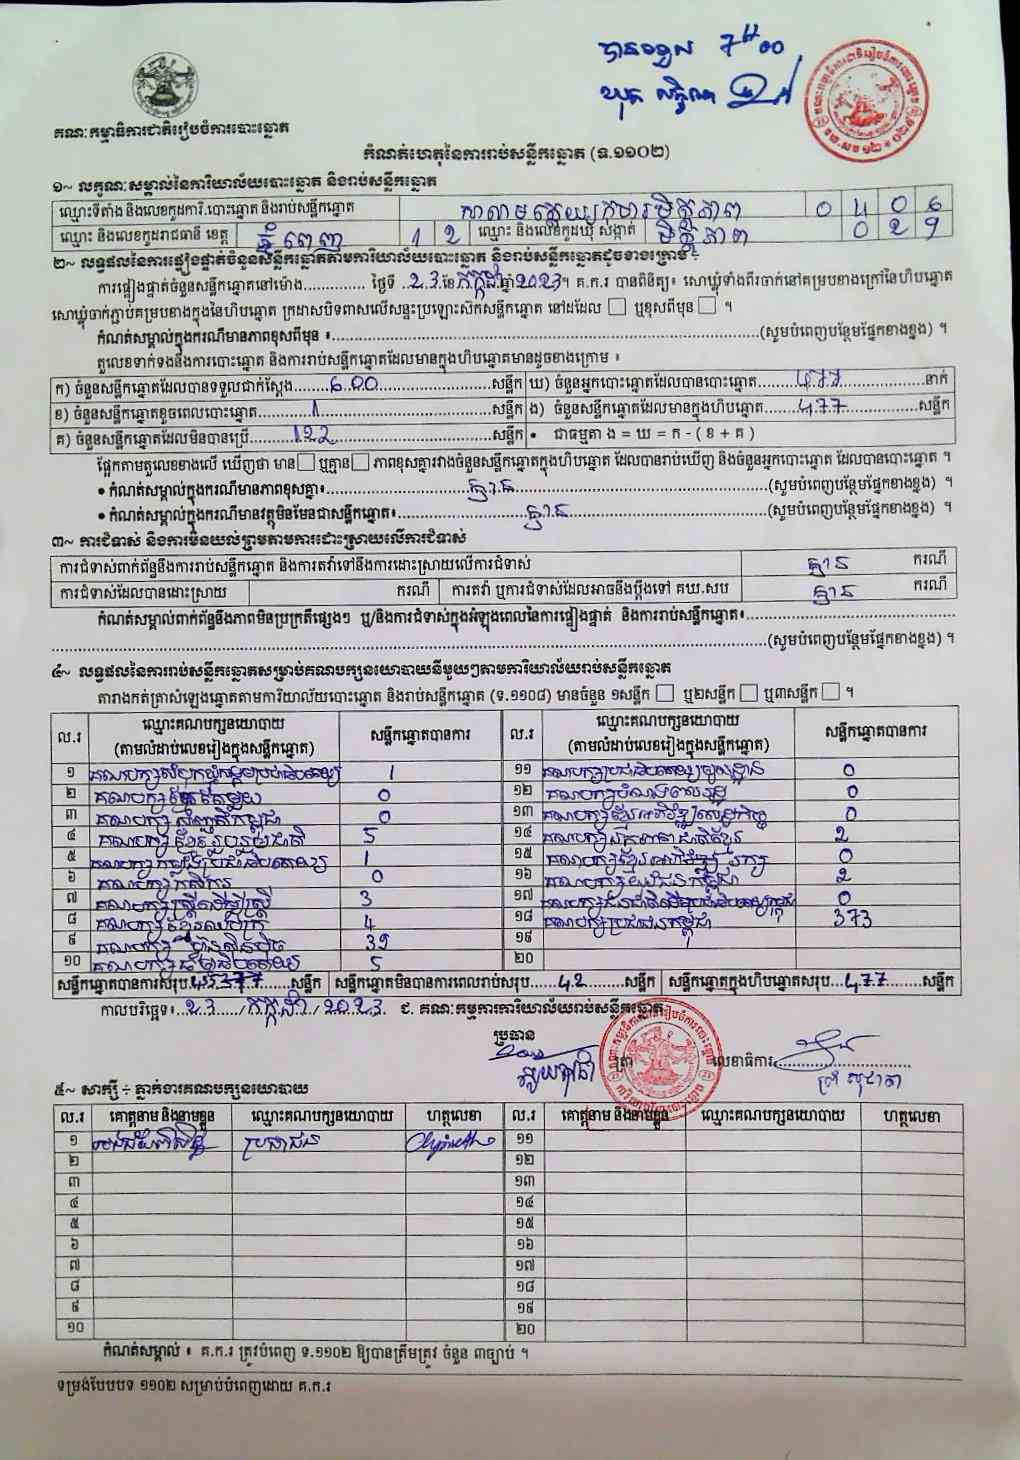 បានទទួល 7H00
គណៈកម្មាធិការជាតិរៀបចំការបោះឆ្នោត
កំណត់ហេតុនៃការរាប់សន្លឹកឆ្នោត (ទ.១១០២)
១~ លក្ខណៈសម្គាល់នៃការិយាល័យបោះឆ្នោត និងរាប់សន្លឹកឆ្នោត
ឈ្មោះទីតាំង និងលេខកូដការិ.បោះឆ្នោត និងរាប់សន្លឹកឆ្នោត 0 4 0 6
ឈ្មោះ និងលេខកូដរាជធានី ខេត្ត ភ្នំពេញ 1 2 ឈ្មោះ និងលេខកូដឃុំ សង្កាត់ មិត្តភាព 0 2 9
២~ លទ្ធផលនៃការផ្ទៀងផ្ទាត់ចំនួនសន្លឹកឆ្នោតតាមការិយាល័យបោះឆ្នោត និងរាប់សន្លឹកឆ្នោតដូចខាងក្រោម ÷
ការផ្ទៀងផ្ទាត់ចំនួនសន្លឹកឆ្នោតនៅម៉ោង.............. ថ្ងៃទី ..23.ខែកក្កដាឆ្នាំ2023។ គ.ក.រ បានពិនិត្យ៖ សោឃ្លុំទាំងពីរចាក់នៅគម្របខាងក្រៅនៃហិបឆ្នោត
សោឃ្លុំចាក់ភ្ជាប់គម្របខាងក្នុងនៃហិបឆ្នោត ក្រដាសបិទពាសលើសន្ទះប្រឡោះស៊កសន្លឹកឆ្នោត នៅដដែល □ ឬខុសពីមុន □ ។
កំណត់សម្គាល់ក្នុងករណីមានភាពខុសពីមុន ៖..........(សូមបំពេញបន្ថែមផ្នែកខាងខ្នង) ។
តួលេខទាក់ទងនឹងការបោះឆ្នោត និងការរាប់សន្លឹកឆ្នោតដែលមានក្នុងហិបឆ្នោតមានដូចខាងក្រោម ៖
ក) ចំនួនសន្លឹកឆ្នោតដែលបានទទួលជាក់ស្តែង........600..........សន្លឹក ឃ) ចំនួនអ្នកបោះឆ្នោតដែលបានបោះឆ្នោត........477..........នាក់
ខ) ចំនួនសន្លឹកឆ្នោតខូចពេលបោះឆ្នោត..........1..........សន្លឹក ង) ចំនួនសន្លឹកឆ្នោតដែលមានក្នុងហិបឆ្នោត........477..........សន្លឹក
គ) ចំនួនសន្លឹកឆ្នោតដែលមិនបានប្រើ........122..........សន្លឹក • ជាធម្មតា ង = ឃ = ក - ( ខ + គ )
ផ្អែកតាមតួលេខខាងលើ ឃើញថា មាន□ ឬគ្មាន□ ភាពខុសគ្នារវាងចំនួនសន្លឹកឆ្នោតក្នុងហិបឆ្នោត ដែលបានរាប់ឃើញ និងចំនួនអ្នកបោះឆ្នោត ដែលបានបោះឆ្នោត ។
• កំណត់សម្គាល់ក្នុងករណីមានភាពខុសគ្នា៖..........គ្មាន..........(សូមបំពេញបន្ថែមផ្នែកខាងខ្នង) ។
• កំណត់សម្គាល់ក្នុងករណីមានវត្ថុមិនមែនជាសន្លឹកឆ្នោត៖..........គ្មាន..........(សូមបំពេញបន្ថែមផ្នែកខាងខ្នង) ។
៣~ ការជំទាស់ និងការមិនយល់ព្រមតាមការដោះស្រាយលើការជំទាស់
ការជំទាស់ពាក់ព័ន្ធនឹងការរាប់សន្លឹកឆ្នោត និងការតវ៉ាទៅនឹងការដោះស្រាយលើការជំទាស់ គ្មាន ករណី
ការជំទាស់ដែលបានដោះស្រាយ ករណី ការតវ៉ា ឬការជំទាស់ដែលអាចនឹងប្តឹងទៅ គឃ.សប គ្មាន ករណី
កំណត់សម្គាល់ពាក់ព័ន្ធនឹងភាពមិនប្រក្រតីផ្សេងៗ ឬ/និងការជំទាស់ក្នុងអំឡុងពេលនៃការផ្ទៀងផ្ទាត់ និងការរាប់សន្លឹកឆ្នោត៖..........
..........(សូមបំពេញបន្ថែមផ្នែកខាងខ្នង) ។
៤~ លទ្ធផលនៃការរាប់សន្លឹកឆ្នោតសម្រាប់គណបក្សនយោបាយនីមួយៗតាមការិយាល័យរាប់សន្លឹកឆ្នោត
តារាងកត់ត្រាសំឡេងឆ្នោតតាមការិយាល័យបោះឆ្នោត និងរាប់សន្លឹកឆ្នោត (ទ.១១០៨) មានចំនួន ១សន្លឹក □ ឬ២សន្លឹក □ ឬ៣សន្លឹក □ ។
ល.រ ឈ្មោះគណបក្សនយោបាយ (តាមលំដាប់លេខរៀងក្នុងសន្លឹកឆ្នោត) សន្លឹកឆ្នោតបានការ ល.រ ឈ្មោះគណបក្សនយោបាយ (តាមលំដាប់លេខរៀងក្នុងសន្លឹកឆ្នោត) សន្លឹកឆ្នោតបានការ
១ គណបក្សសំបុកឃ្មុំសង្គមប្រជាធិបតេយ្យ 1 ១១ គណបក្សប្រជាធិបតេយ្យមូលដ្ឋាន 0
២ គណបក្សខ្មែរតែមួយ 0 ១២ គណបក្សបំណងពលរដ្ឋ 0
៣ គណបក្សសញ្ជាតិកម្ពុជា 0 ១៣ គណបក្សខ្មែរអភិវឌ្ឍន៍សេដ្ឋកិច្ច 0
៤ គណបក្សខ្មែររួបរួមជាតិ 5 ១៤ គណបក្សឯកភាពជាតិខ្មែរ 2
៥ គណបក្សកម្លាំងប្រជាធិបតេយ្យ 1 ១៥ គណបក្សខ្មែរអភិរក្ស 0
៦ គណបក្សកសិករ 0 ១៦ គណបក្សយុវជនកម្ពុជា 2
៧ គណបក្សស្ត្រីដើម្បីស្ត្រី 3 ១៧ គណបក្សជនជាតិដើមប្រជាធិបតេយ្យកម្ពុជា 0
៨ គណបក្សខ្មែរឈប់ក្រ 4 ១៨ គណបក្សប្រជាជនកម្ពុជា 373
៩ គណបក្សហ៊្វុនស៊ិនប៉ិច 39 ១៩
១០ គណបក្សធម្មាធិបតេយ្យ 5 ២០
សន្លឹកឆ្នោតបានការសរុប..........សន្លឹក សន្លឹកឆ្នោតមិនបានការពេលរាប់សរុប.....42.........សន្លឹក សន្លឹកឆ្នោតក្នុងហិបឆ្នោតសរុប...477........សន្លឹក
កាលបរិច្ឆេទ៖..23...../កក្កដា/2023. ជ. គណៈកម្មការការិយាល័យរាប់សន្លឹកឆ្នោត
ប្រធាន
ត្រា លេខាធិការ..........
៥~ សាក្សី ÷ ភ្នាក់ងារគណបក្សនយោបាយ
ល.រ គោត្តនាម និងនាមខ្លួន ឈ្មោះគណបក្សនយោបាយ ហត្ថលេខា ល.រ គោត្តនាម និងនាមខ្លួន ឈ្មោះគណបក្សនយោបាយ ហត្ថលេខា
១ ប្រជាជន ១១
២ ១២
៣ ១៣
៤ ១៤
៥ ១៥
៦ ១៦
៧ ១៧
៨ ១៨
៩ ១៩
១០ ២០
កំណត់សម្គាល់ ៖ គ.ក.រ ត្រូវបំពេញ ទ.១១០២ ឱ្យបានត្រឹមត្រូវ ចំនួន ៣ច្បាប់ ។
ទម្រង់បែបបទ ១១០២ សម្រាប់បំពេញដោយ គ.ក.រ